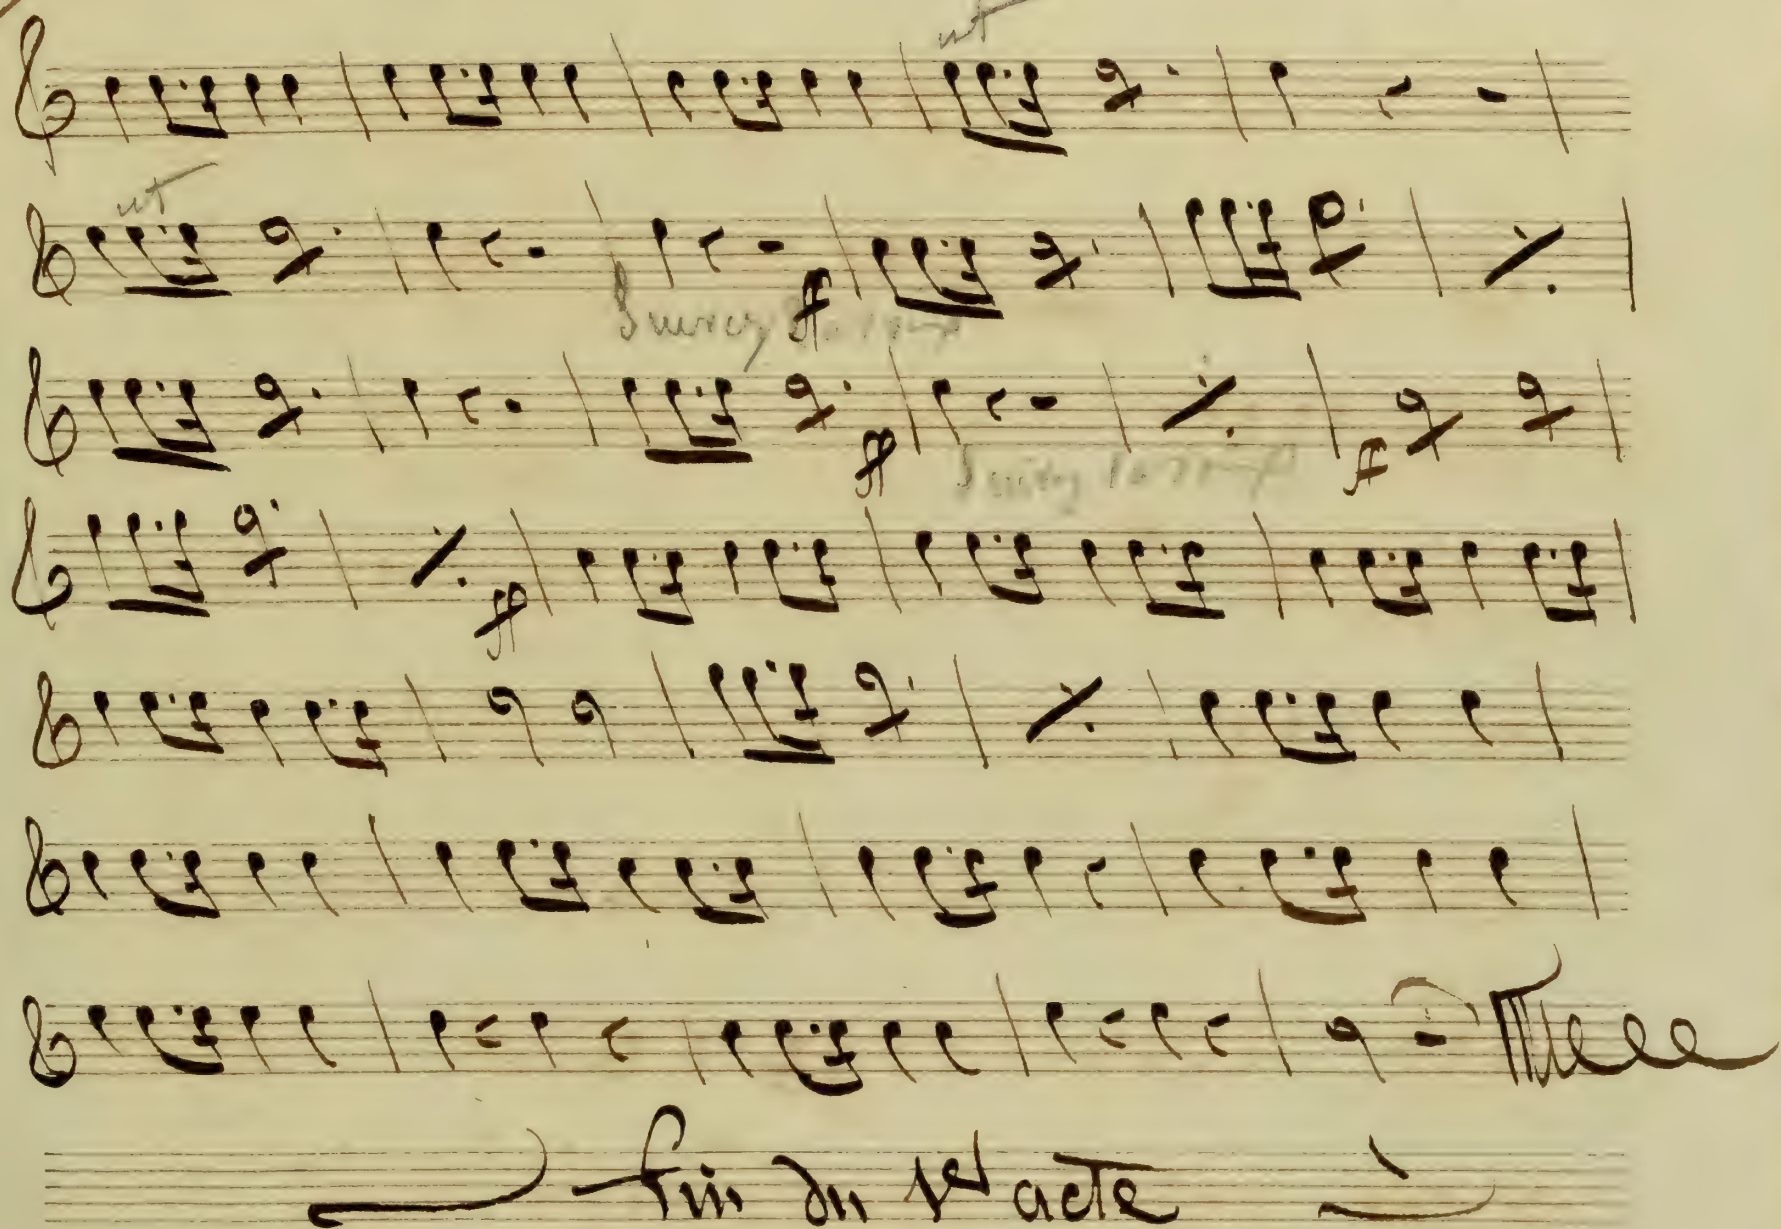 ut
ut
ff
ff
ff
ff
fin du 1er acte